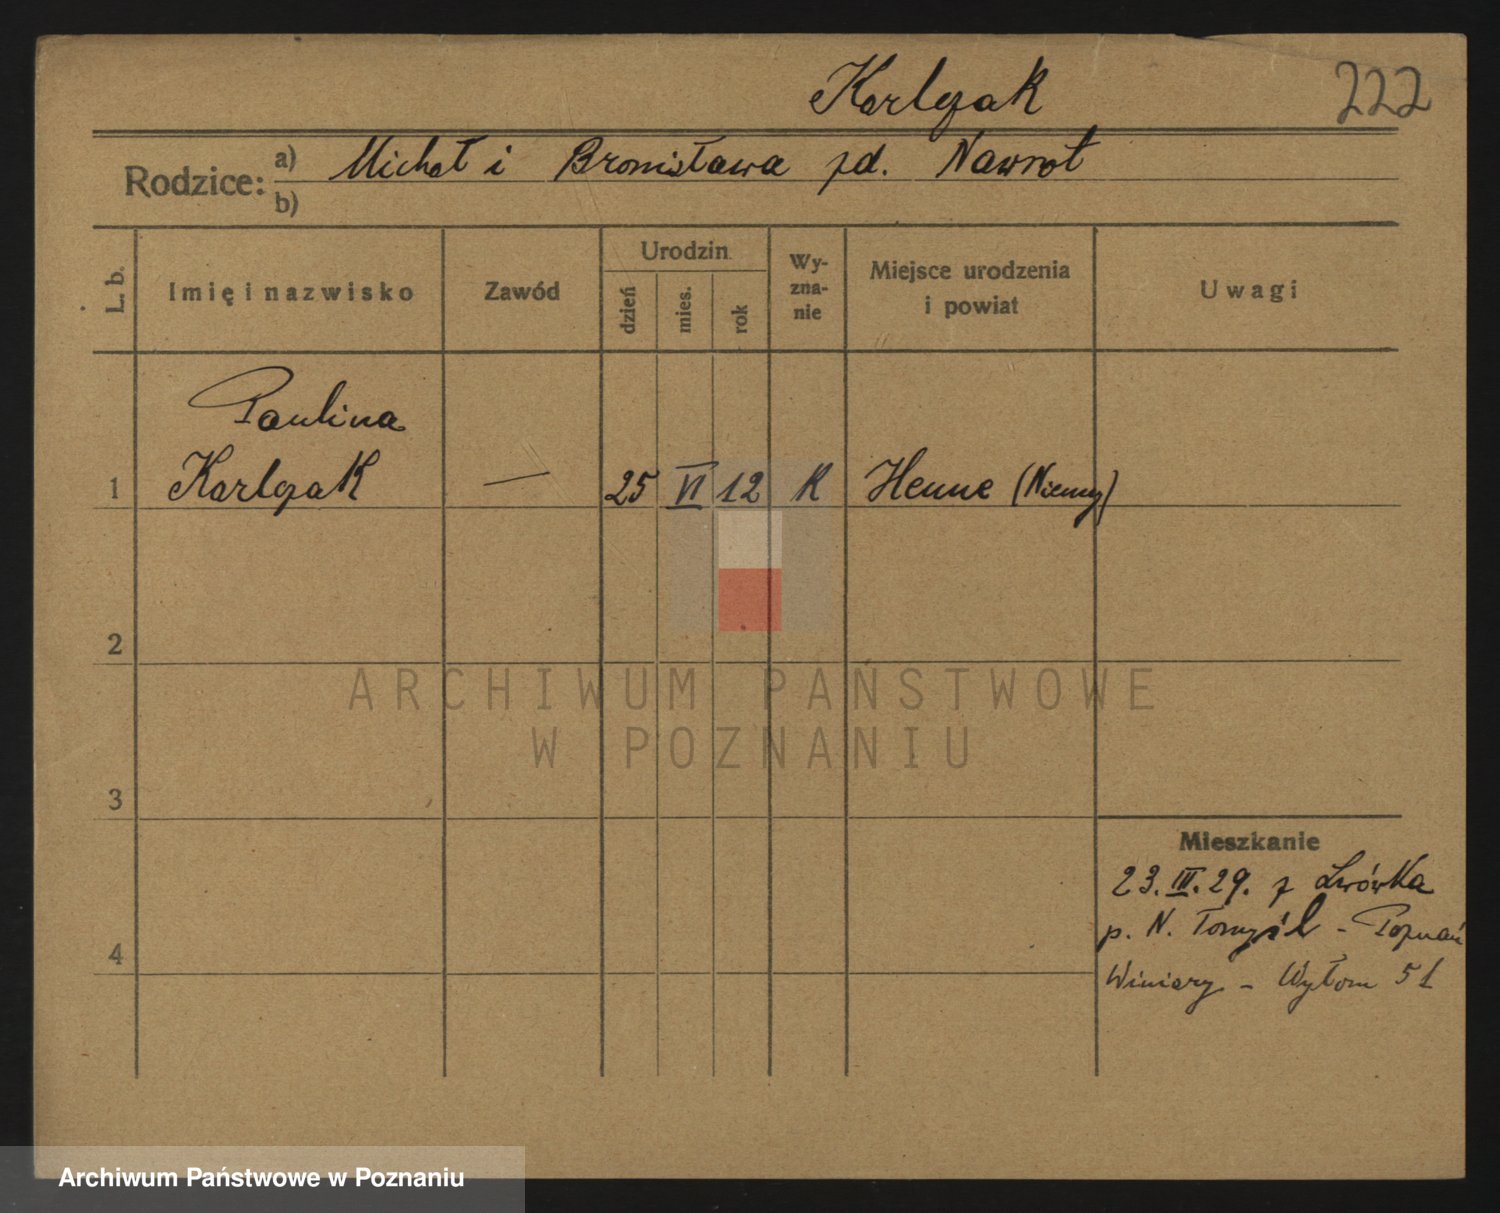 Karlczak
222
Rodzice: a) Michał i Bronisława zd. Nawrot
b)
L. b.
Imię i nazwisko
Zawód
Urodzin
dzień
mies.
rok
Wy-
zna-
nie
Miejsce urodzenia
i powiat
Uwagi
Paulina
1 Karlczak — 25 VI 12 K Henne (Niemcy)
2
3
4
Mieszkanie
23.III.29. z Lwówka
p. N. Tomyśl - Poznań
Winiary - Wyłom 51
ARCHIWUM PAŃSTWOWE
W POZNANIU
Archiwum Państwowe w Poznaniu